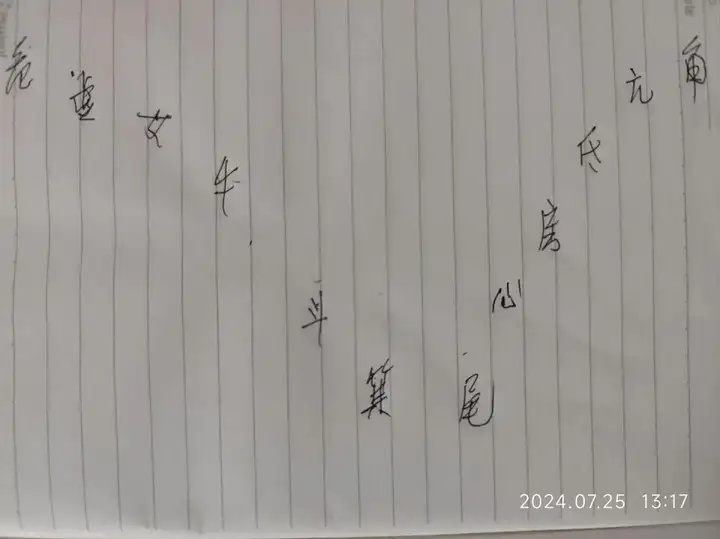 角亢氐房心尾箕斗牛女虚危
2024.07.25 13:17